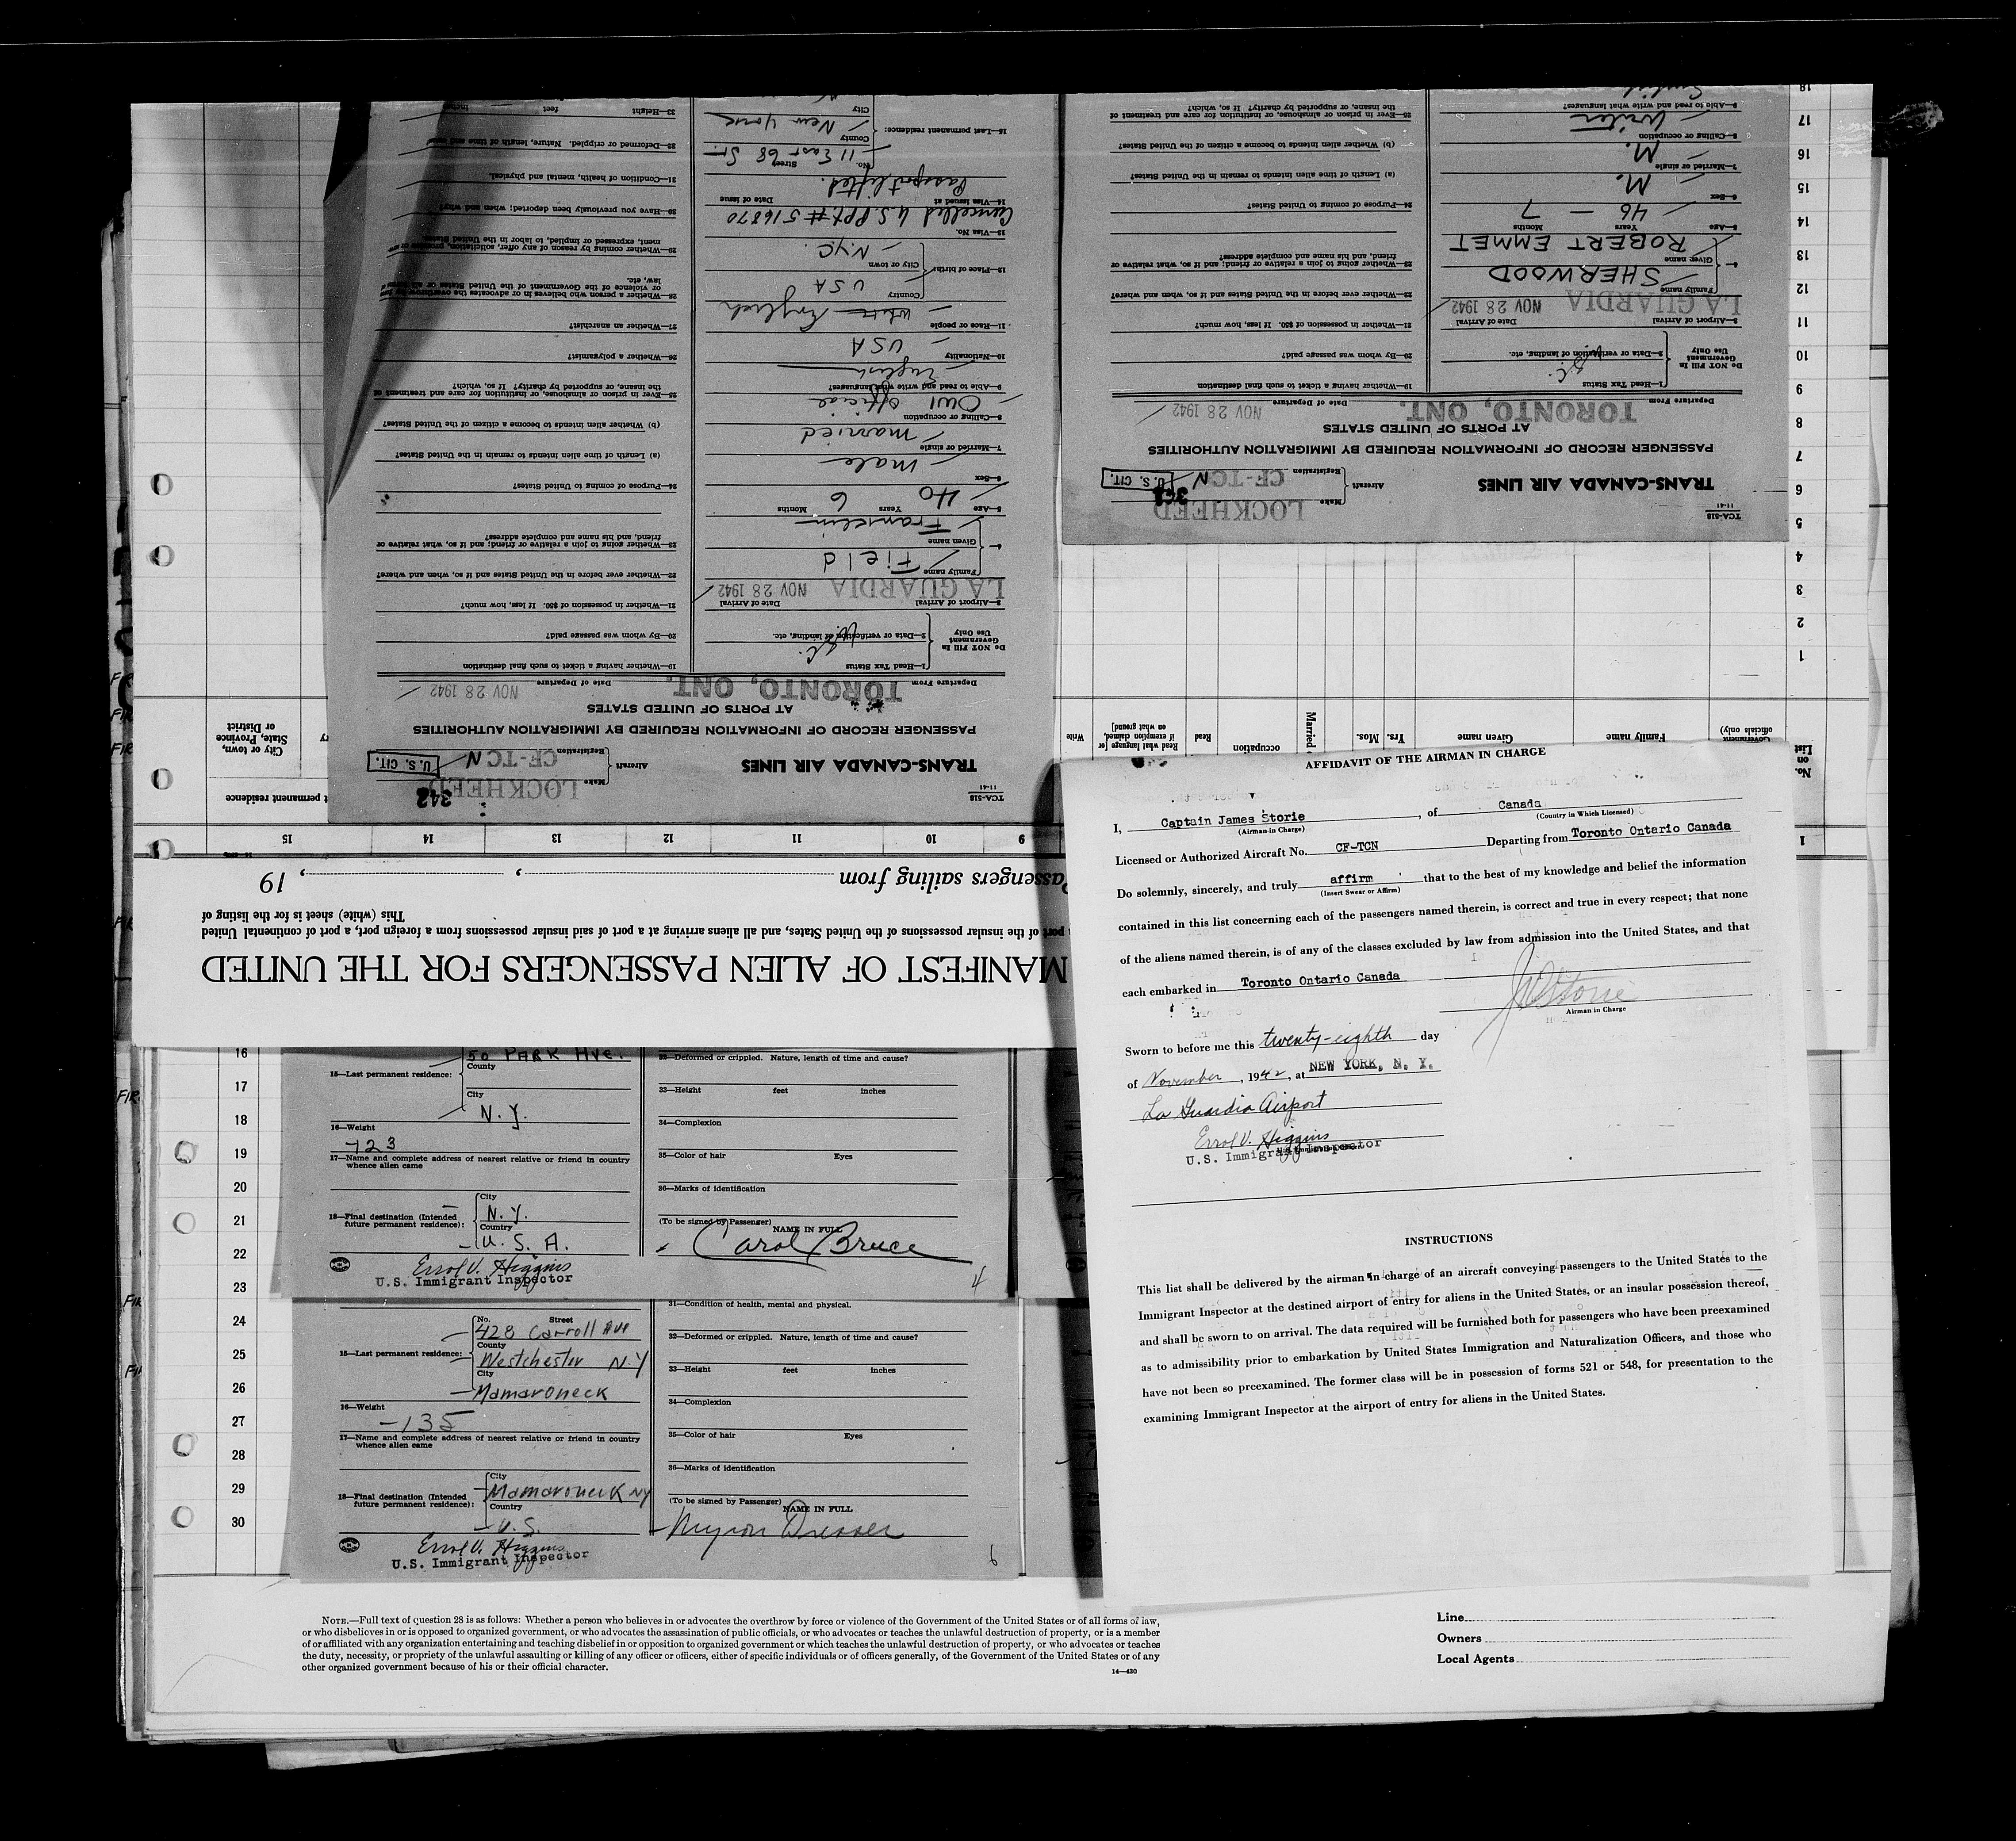 TCA-518
11-41
TRANS-CANADA AIR LINES
Aircraft
Make
LOCKHEED
Registration
CF-TCN
U. S. CIT.
PASSENGER RECORD OF INFORMATION REQUIRED BY IMMIGRATION AUTHORITIES
AT PORTS OF UNITED STATES
Departure From TORONTO, ONT. Date of Departure NOV 28 1942
DO NOT FILL IN
Government
Use Only
1—Head Tax Status
2—Data or verification of landing, etc.
3—Airport of Arrival Date of Arrival
LA GUARDIA NOV 28 1942
4—
Family name
Field
Given name
Franklin
5—Age Years Months
40 6
6—Sex
male
7—Married or single
married
8—Calling or occupation
OWI official
9—Able to read and write what languages?
English
10—Nationality
USA
11—Race or people
English
12—Place of birth:
Country
USA
City or town
N.Y.C.
13—Visa No.
Cancelled U.S. Ppt. # 516870
14—Visa issued at Date of issue
Passport lifted.
15—Last permanent residence:
No. Street
11 East 68 St.
County
New York
City
19—Whether having a ticket to such final destination
20—By whom was passage paid?
21—Whether in possession of $50. If less, how much?
22—Whether ever before in the United States and if so, when and where?
23—Whether going to join a relative or friend; and if so, what relative or
friend, and his name and complete address?
24—Purpose of coming to United States?
(a) Length of time alien intends to remain in the United States?
(b) Whether alien intends to become a citizen of the United States?
25—Ever in prison or almshouse, or institution for care and treatment of
the insane, or supported by charity? If so, which?
26—Whether a polygamist?
27—Whether an anarchist?
28—Whether a person who believes in or advocates the overthrow by
or violence of the Government of the United States or all
law, etc.
29—Whether coming by reason of any offer, solicitation, promise or
ment, expressed or implied, to labor in the United States.
30—Have you previously been deported; when and why?
31—Condition of health, mental and physical.
32—Deformed or crippled. Nature, length of time and
33—Height feet
TCA-518
11-41
TRANS-CANADA AIR LINES
Aircraft
Make
LOCKHEED
Registration
CF-TCN
U. S. CIT.
PASSENGER RECORD OF INFORMATION REQUIRED BY IMMIGRATION AUTHORITIES
AT PORTS OF UNITED STATES
Departure From TORONTO, ONT. Date of Departure NOV 28 1942
Do NOT Fill In
Government
Use Only
1—Head Tax Status
2—Data or verification of landing, etc.
3—Airport of Arrival Date of Arrival
LA GUARDIA NOV 28 1942
4—
Family name
SHERWOOD
Given name
ROBERT EMMET
5—Age Years Months
46 — 7
6—Sex
M.
7—Married or single
M.
8—Calling or occupation
Writer
9—Able to read and write what languages?
English
19—Whether having a ticket to such final destination
20—By whom was passage paid?
21—Whether in possession of $50. If less, how much?
22—Whether ever before in the United States and if so, when and where?
23—Whether going to join a relative or friend; and if so, what relative or
friend, and his name and complete address?
24—Purpose of coming to United States?
(a) Length of time alien intends to remain in the United States?
(b) Whether alien intends to become a citizen of the United States?
25—Ever in prison or almshouse, or institution for care and treatment of
the insane, or supported by charity? If so, which?
MANIFEST OF ALIEN PASSENGERS FOR THE UNITED
port of the insular possessions of the United States, and all aliens arriving at a port of said insular possessions from a foreign port, a port of continental United
This (white) sheet is for the listing of
Passengers sailing from , , 19
1 9 10 11 12 13 14 15
No.
on
List
officials only)
Family name
Given name
Yrs. Mos.
Married
occupation
Read
Read what language [or
if exemption claimed,
on what ground]
Write
City or town,
State, Province
or District
t permanent residence
1
2
3
4
5
6
7
8
9
10
11
12
13
14
15
16
17
18
16
17
18
19
20
21
22
23
24
25
26
27
28
29
30
50 PARK AVE.
15—Last permanent residence:
County
City
N. Y.
16—Weight
123
17—Name and complete address of nearest relative or friend in country
whence alien came
18—Final destination (Intended
future permanent residence):
City
N. Y.
Country
U. S. A.
Errol V. Higgins
U.S. Immigrant Inspector
32—Deformed or crippled. Nature, length of time and cause?
33—Height feet inches
34—Complexion
35—Color of hair Eyes
36—Marks of identification
(To be signed by Passenger)
NAME IN FULL
Carol Bruce
4
15—Last permanent residence:
No. Street
428 Carroll Ave
County
Westchester N.Y
City
Mamaroneck
16—Weight
135
17—Name and complete address of nearest relative or friend in country
whence alien came
18—Final destination (Intended
future permanent residence):
City
Mamaroneck NY
Country
U.S.
Errol V. Higgins
U.S. Immigrant Inspector
31—Condition of health, mental and physical.
32—Deformed or crippled. Nature, length of time and cause?
33—Height feet inches
34—Complexion
35—Color of hair Eyes
36—Marks of identification
(To be signed by Passenger)
NAME IN FULL
Myron Dresser
AFFIDAVIT OF THE AIRMAN IN CHARGE
I, Captain James Storie, of Canada
(Airman in Charge) (Country in Which Licensed)
Licensed or Authorized Aircraft No. CF-TCN Departing from Toronto Ontario Canada
Do solemnly, sincerely, and truly affirm that to the best of my knowledge and belief the information
(Insert Swear or Affirm)
contained in this list concerning each of the passengers named therein, is correct and true in every respect; that none
of the aliens named therein, is of any of the classes excluded by law from admission into the United States, and that
each embarked in Toronto Ontario Canada
Storie
Airman in Charge
Sworn to before me this twenty-eighth day
of November, 1942, at NEW YORK, N. Y.
La Guardia Airport
Errol V. Higgins
U.S. Immigrant Inspector
INSTRUCTIONS
This list shall be delivered by the airman in charge of an aircraft conveying passengers to the United States to the
Immigrant Inspector at the destined airport of entry for aliens in the United States, or an insular possession thereof,
and shall be sworn to on arrival. The data required will be furnished both for passengers who have been preexamined
as to admissibility prior to embarkation by United States Immigration and Naturalization Officers, and those who
have not been so preexamined. The former class will be in possession of forms 521 or 548, for presentation to the
examining Immigrant Inspector at the airport of entry for aliens in the United States.
NOTE.—Full text of question 28 is as follows: Whether a person who believes in or advocates the overthrow by force or violence of the Government of the United States or of all forms of law,
or who disbelieves in or is opposed to organized government, or who advocates the assassination of public officials, or who advocates or teaches the unlawful destruction of property, or is a member
of or affiliated with any organization entertaining and teaching disbelief in or opposition to organized government or which teaches the unlawful destruction of property, or who advocates or teaches
the duty, necessity, or propriety of the unlawful assaulting or killing of any officer or officers, either of specific individuals or of officers generally, of the Government of the United States or of any
other organized government because of his or their official character.
14—430
Line
Owners
Local Agents